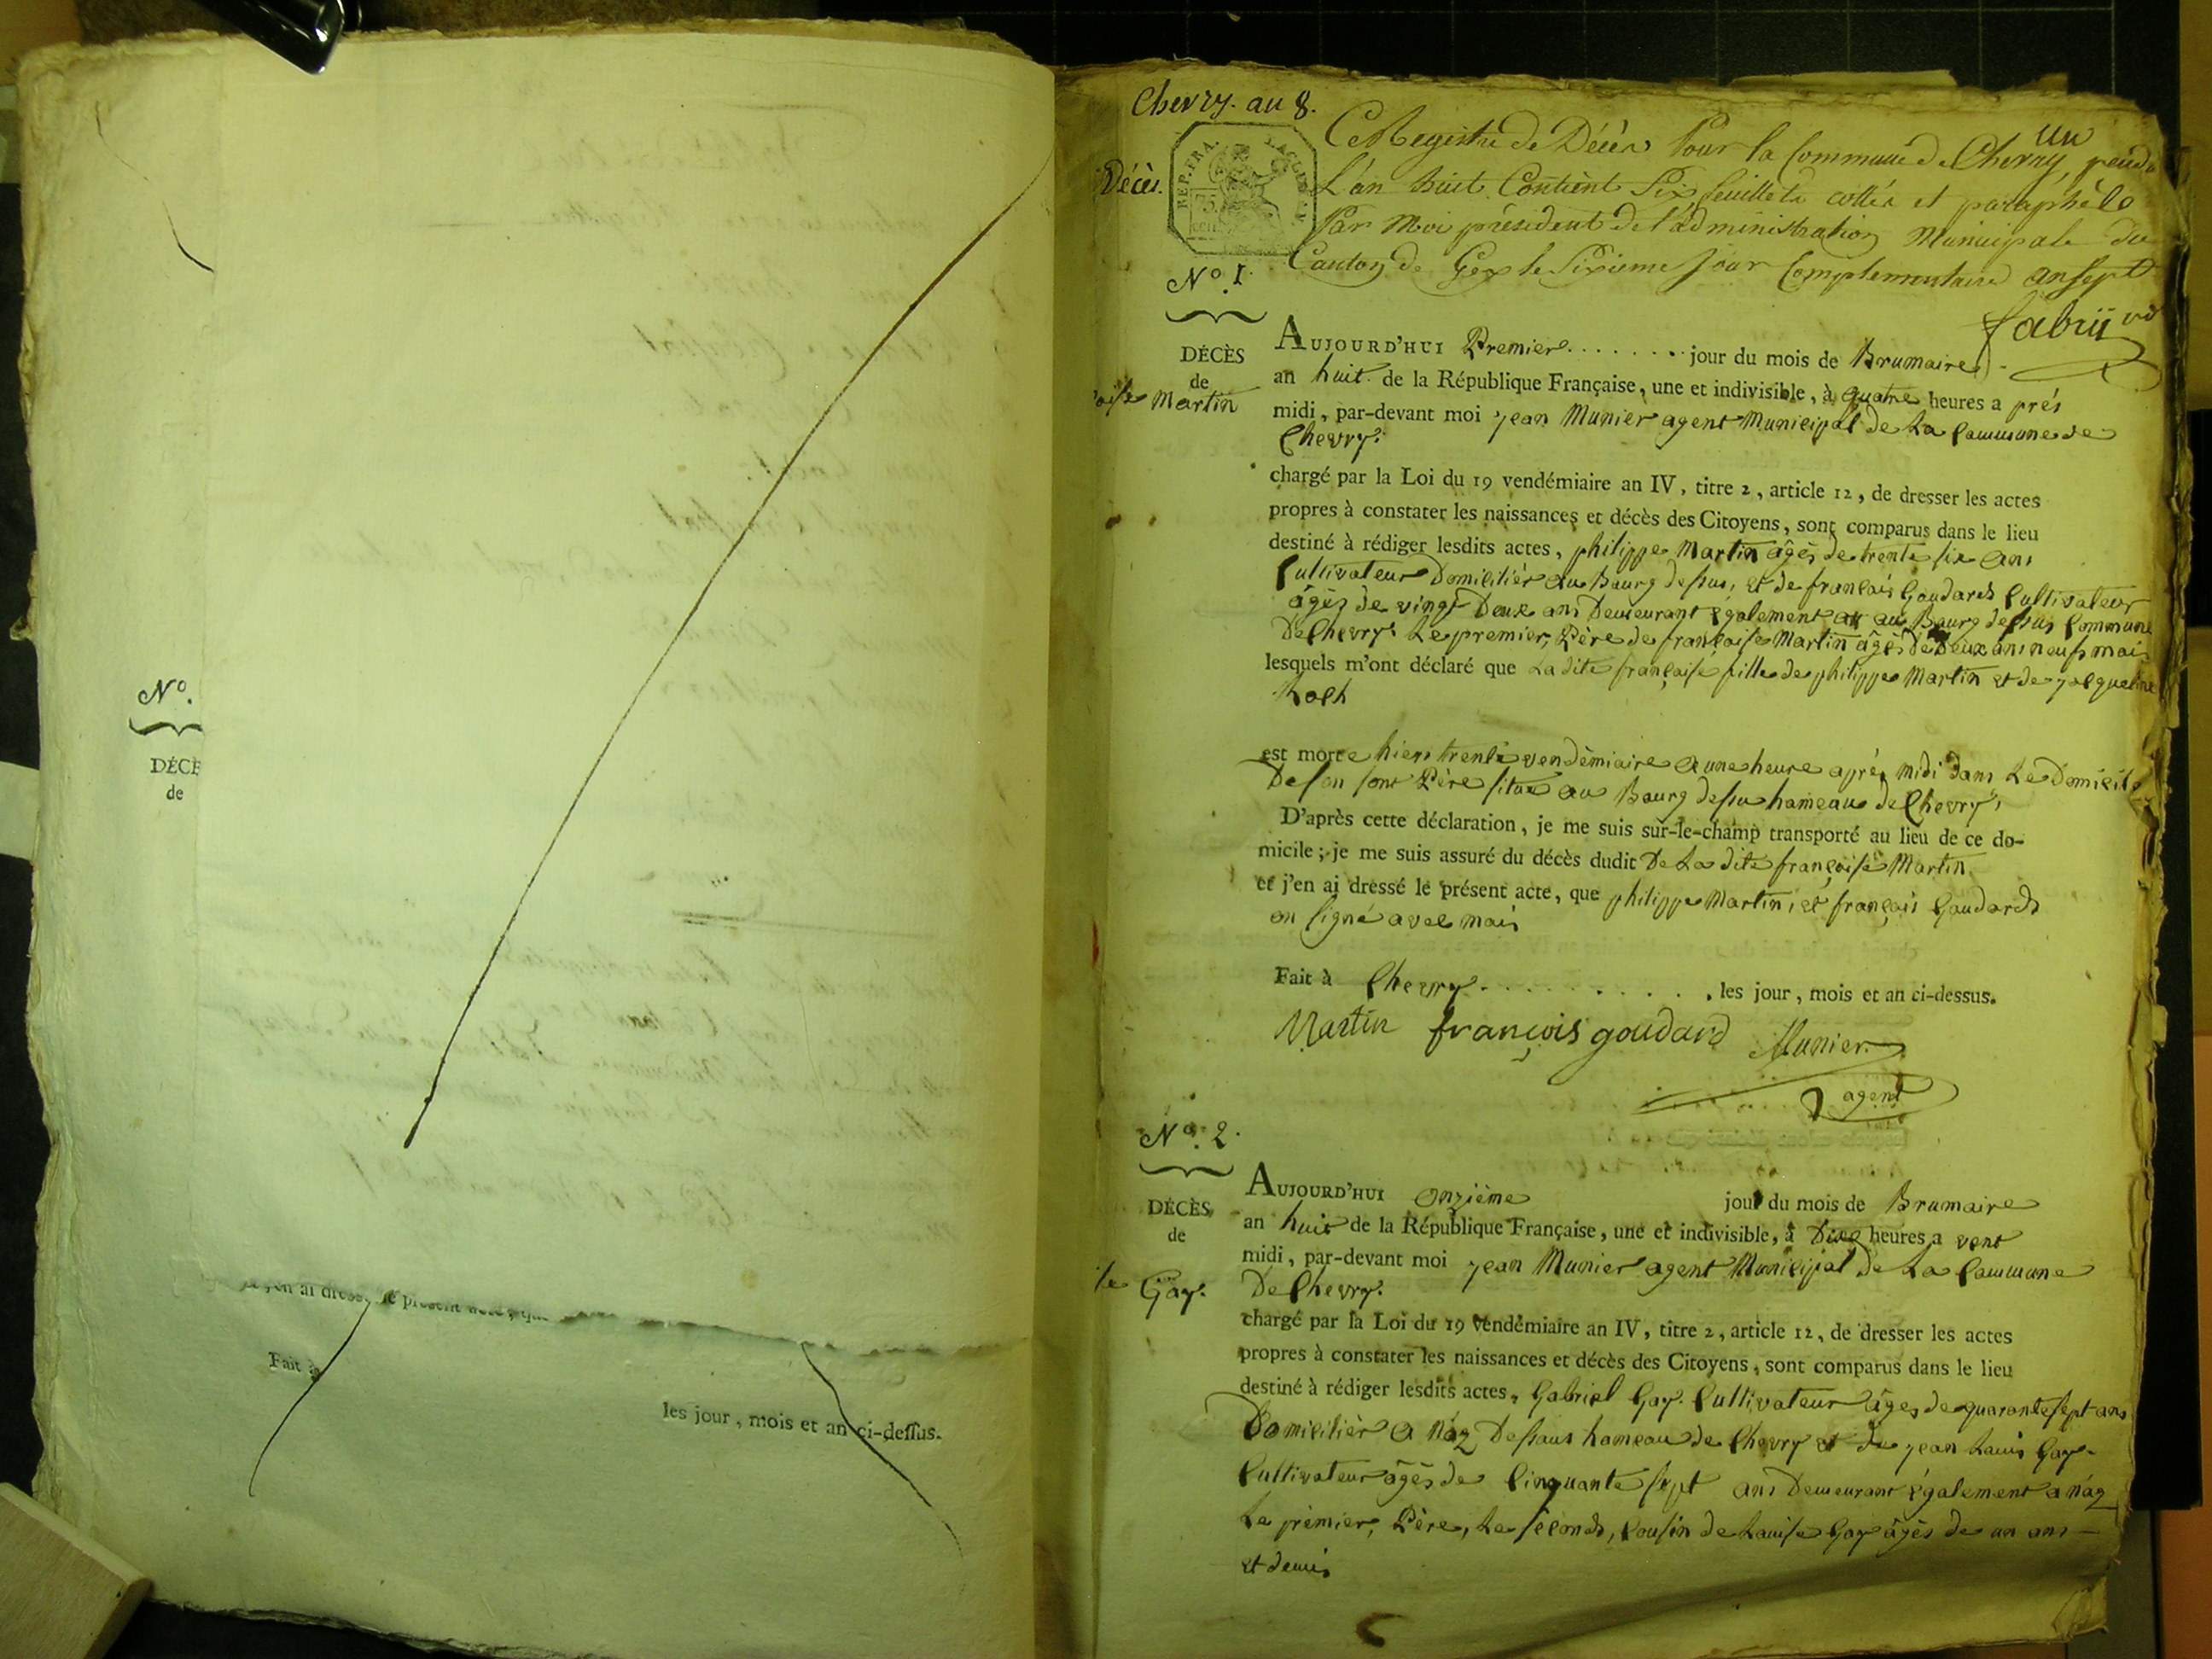 No.
DÉCE
de
Fait à
les jour, mois et an ci-dessus.
Chevry. au 8.
un
Décès.
REP. FRA.
75
Ce Registre de Décès Pour la Commune de Chevry, pend.
L'an huit Contient Six feuillets cottés et paraphés
Par Moi président de l'administration Municipale du
Canton de Gex le Sixieme Jour Complementaire an sept
fabrij
No. 1.
DÉCÈS
de
oise Martin
AUJOURD'HUI Premier . . . . . . . jour du mois de Brumaire
an huit de la République Française, une et indivisible, à quatre heures a prés
midi, par-devant moi jean Munier agent Municipal de La Commune de
Chevry.
chargé par la Loi du 19 vendémiaire an IV, titre 2, article 12, de dresser les actes
propres à constater les naissances et décès des Citoyens, sont comparus dans le lieu
destiné à rédiger lesdits actes, philippe Martin âgés de trente six ans
Cultivateur Domiciliér au Bourg dessus, et de français Goudard Cultivateur
âgéz de vingt Deux ans Demeurant également au Bourg dessus Commune
De Chevry. Le premier, Père de françoise Martin âgés De Deux ans neufs mois
lesquels m'ont déclaré que La dite françoise fille de philippe Martin et de jacqueline
Roch
est morte hiers trente vendémiaire a une heure aprés midi dans Le Domicile
De son Père situé au Bourg dessu hameau de Chevry,
D'après cette déclaration, je me suis sur-le-champ transporté au lieu de ce do-
micile ; je me suis assuré du décès dudit De La dite françoise Martin
et j'en ai dressé le présent acte, que philippe Martin, et françois Goudard
on signé avec mois
Fait à Chevry . . . . . . . . les jour, mois et an ci-dessus.
Martin françois goudard Munier
agent
No. 2.
DÉCÈS
de
se Gay.
AUJOURD'HUI onzième jour du mois de Brumaire
an huit de la République Française, une et indivisible, à Dix heures a vent
midi, par-devant moi jean Munier agent Municipal De La Commune
De Chevry.
chargé par la Loi du 19 vendémiaire an IV, titre 2, article 12, de dresser les actes
propres à constater les naissances et décès des Citoyens, sont comparus dans le lieu
destiné à rédiger lesdits actes, Gabriel Gay. Cultivateur âges de quarante sept ans
Domiciliér a Náz Dessous hameau de Chevry et de jean Louis Gay.
Cultivateur âgés de Cinquante sept ans Demeurant également a náz
Le prémier, Père, Le sécond, Cousin de Louise Gay âgés de un ans
et demis